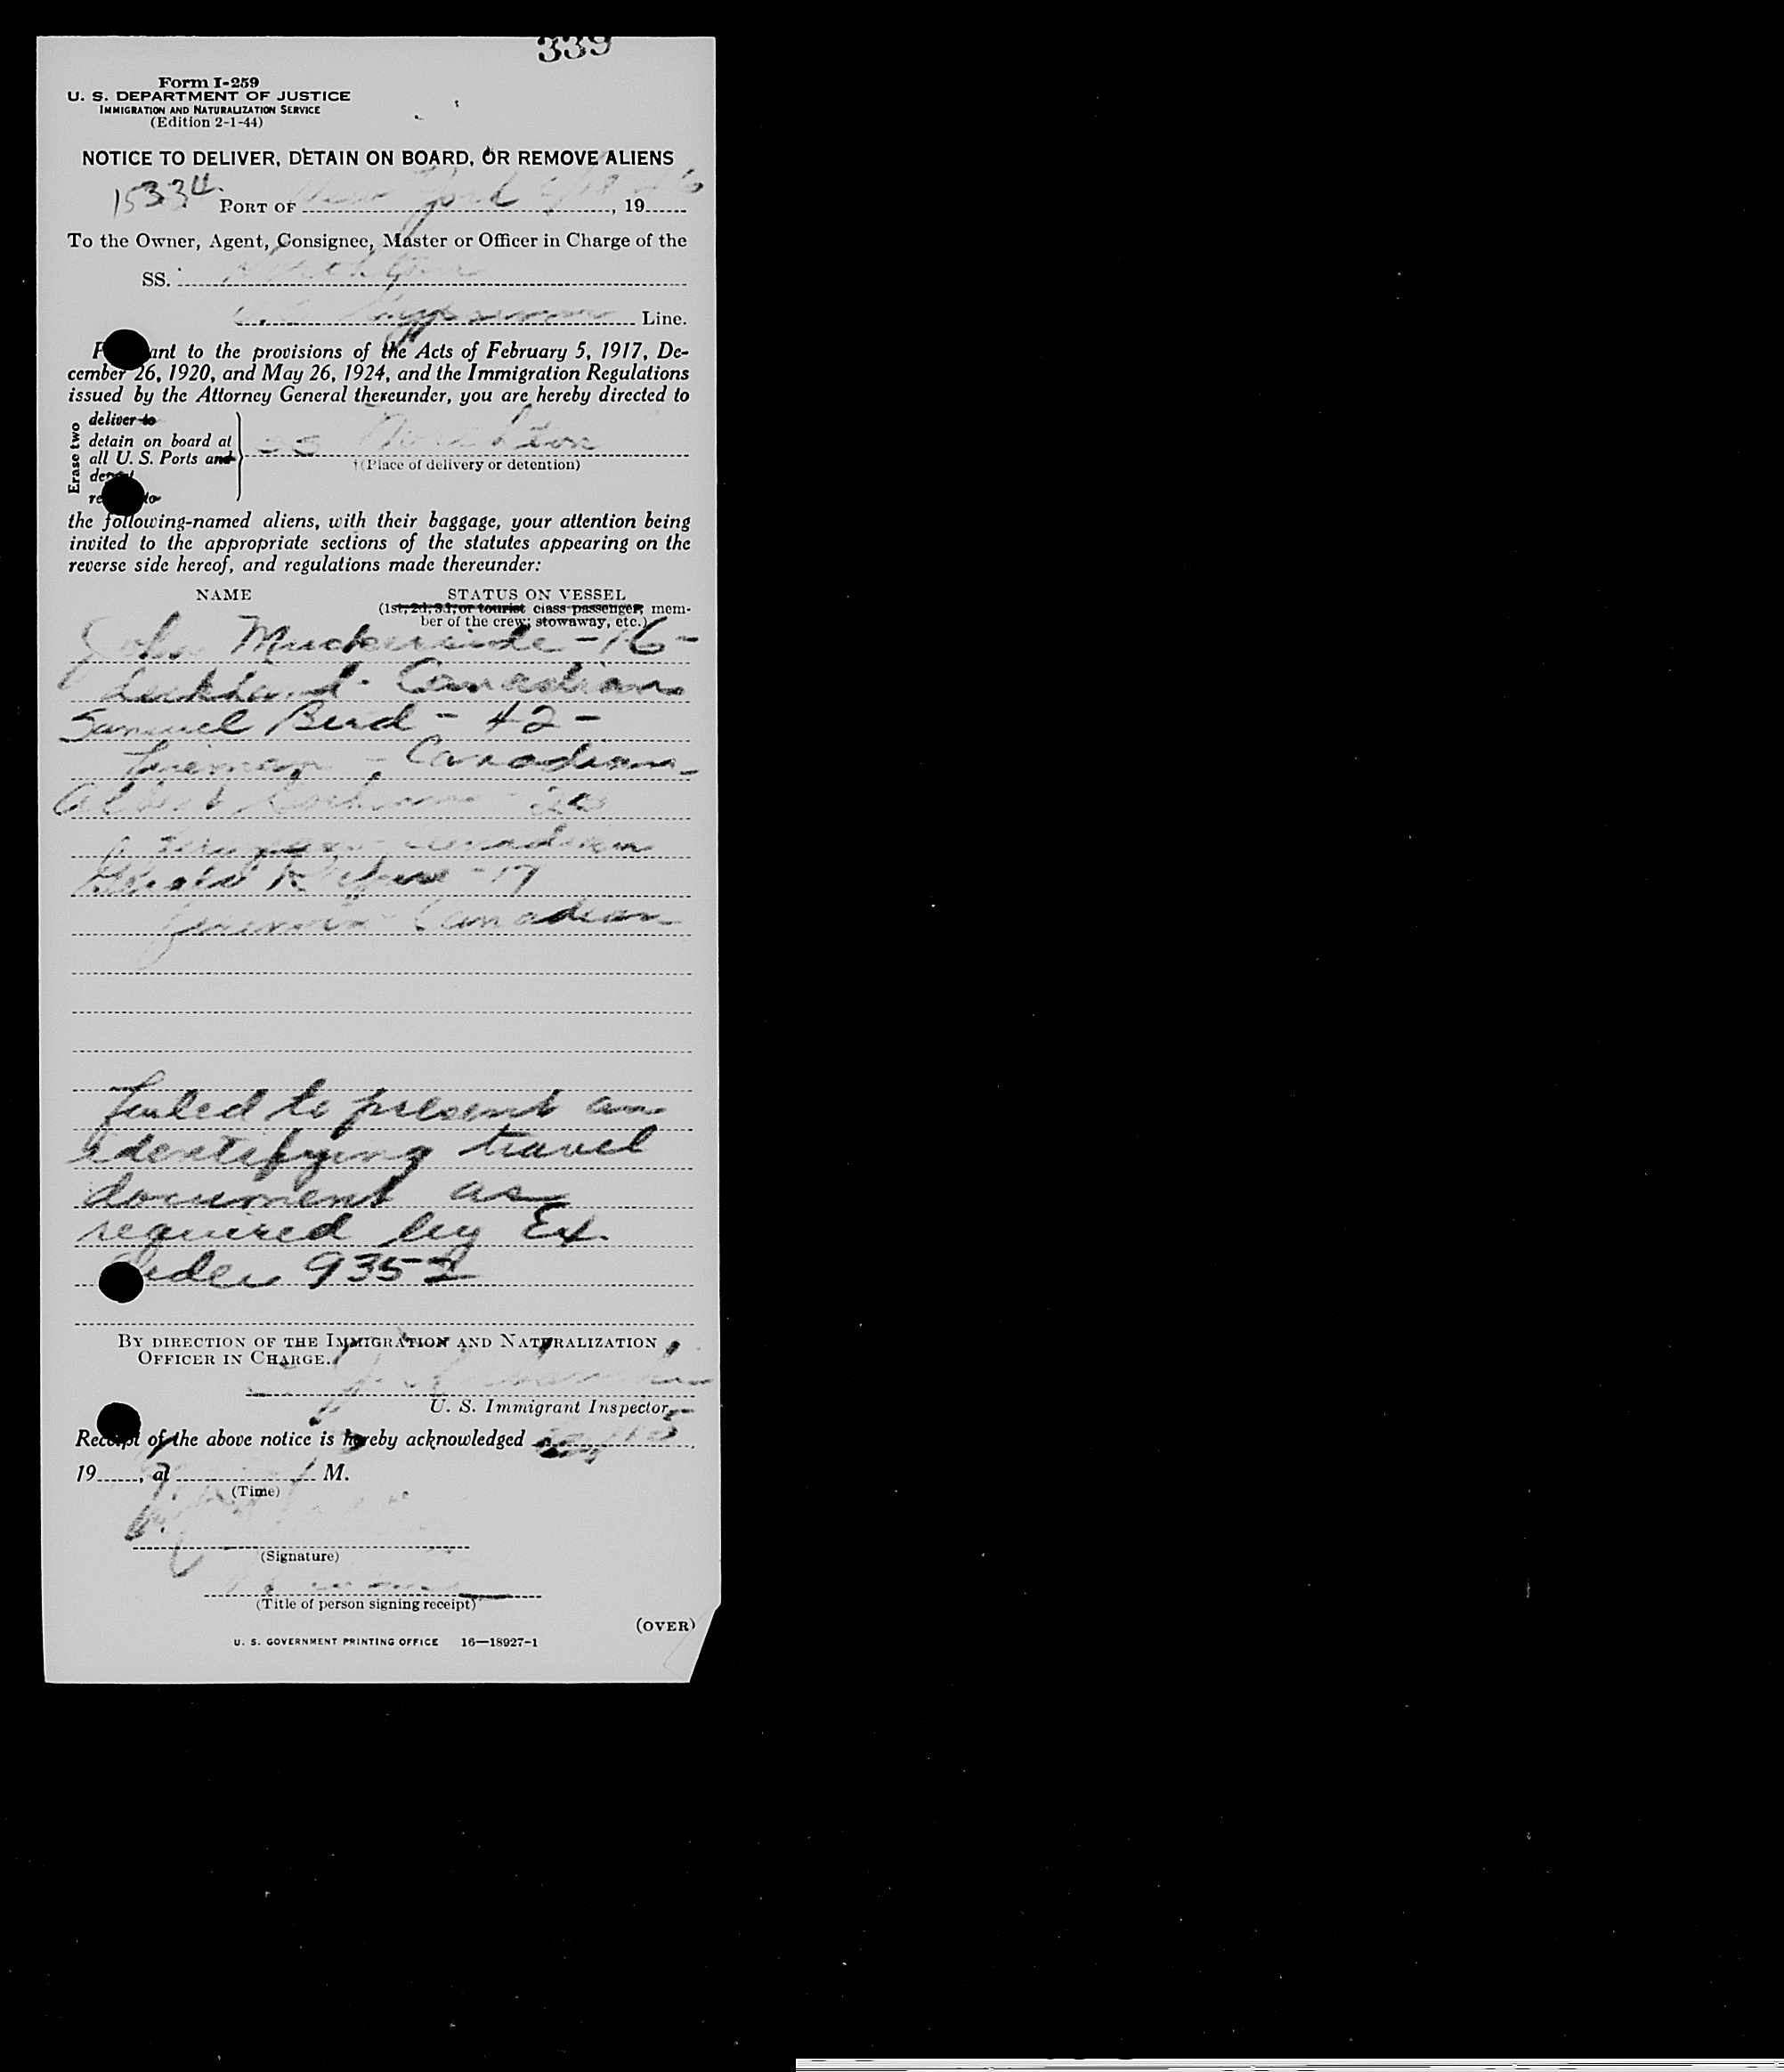 339
Form I-259
U. S. DEPARTMENT OF JUSTICE
IMMIGRATION AND NATURALIZATION SERVICE
(Edition 2-1-44)
NOTICE TO DELIVER, DETAIN ON BOARD, OR REMOVE ALIENS
15334
PORT OF New York , 19
To the Owner, Agent, Consignee, Master or Officer in Charge of the
SS.
Gypsum Line.
ant to the provisions of the Acts of February 5, 1917, De-
cember 26, 1920, and May 26, 1924, and the Immigration Regulations
issued by the Attorney General thereunder, you are hereby directed to
Erase two
deliver to
detain on board at
all U. S. Ports and
SS
†(Place of delivery or detention)
the following-named aliens, with their baggage, your attention being
invited to the appropriate sections of the statutes appearing on the
reverse side hereof, and regulations made thereunder:
NAME STATUS ON VESSEL
(1st, 2d, 3d, or tourist class passenger, mem-
ber of the crew; stowaway, etc.)
John - 16 -
Canadian
Samuel Bird - 42 -
Fireman - Canadian -
Albert
Canadian
Gerald - 17
Fireman - Canadian
Failed to present an
identifying travel
document as
required by Ex.
9352
BY DIRECTION OF THE IMMIGRATION AND NATURALIZATION
OFFICER IN CHARGE.
U. S. Immigrant Inspector
Receipt of the above notice is hereby acknowledged
19 , at M.
(Time)
(Signature)
(Title of person signing receipt)
(OVER)
U. S. GOVERNMENT PRINTING OFFICE 16—18927-1